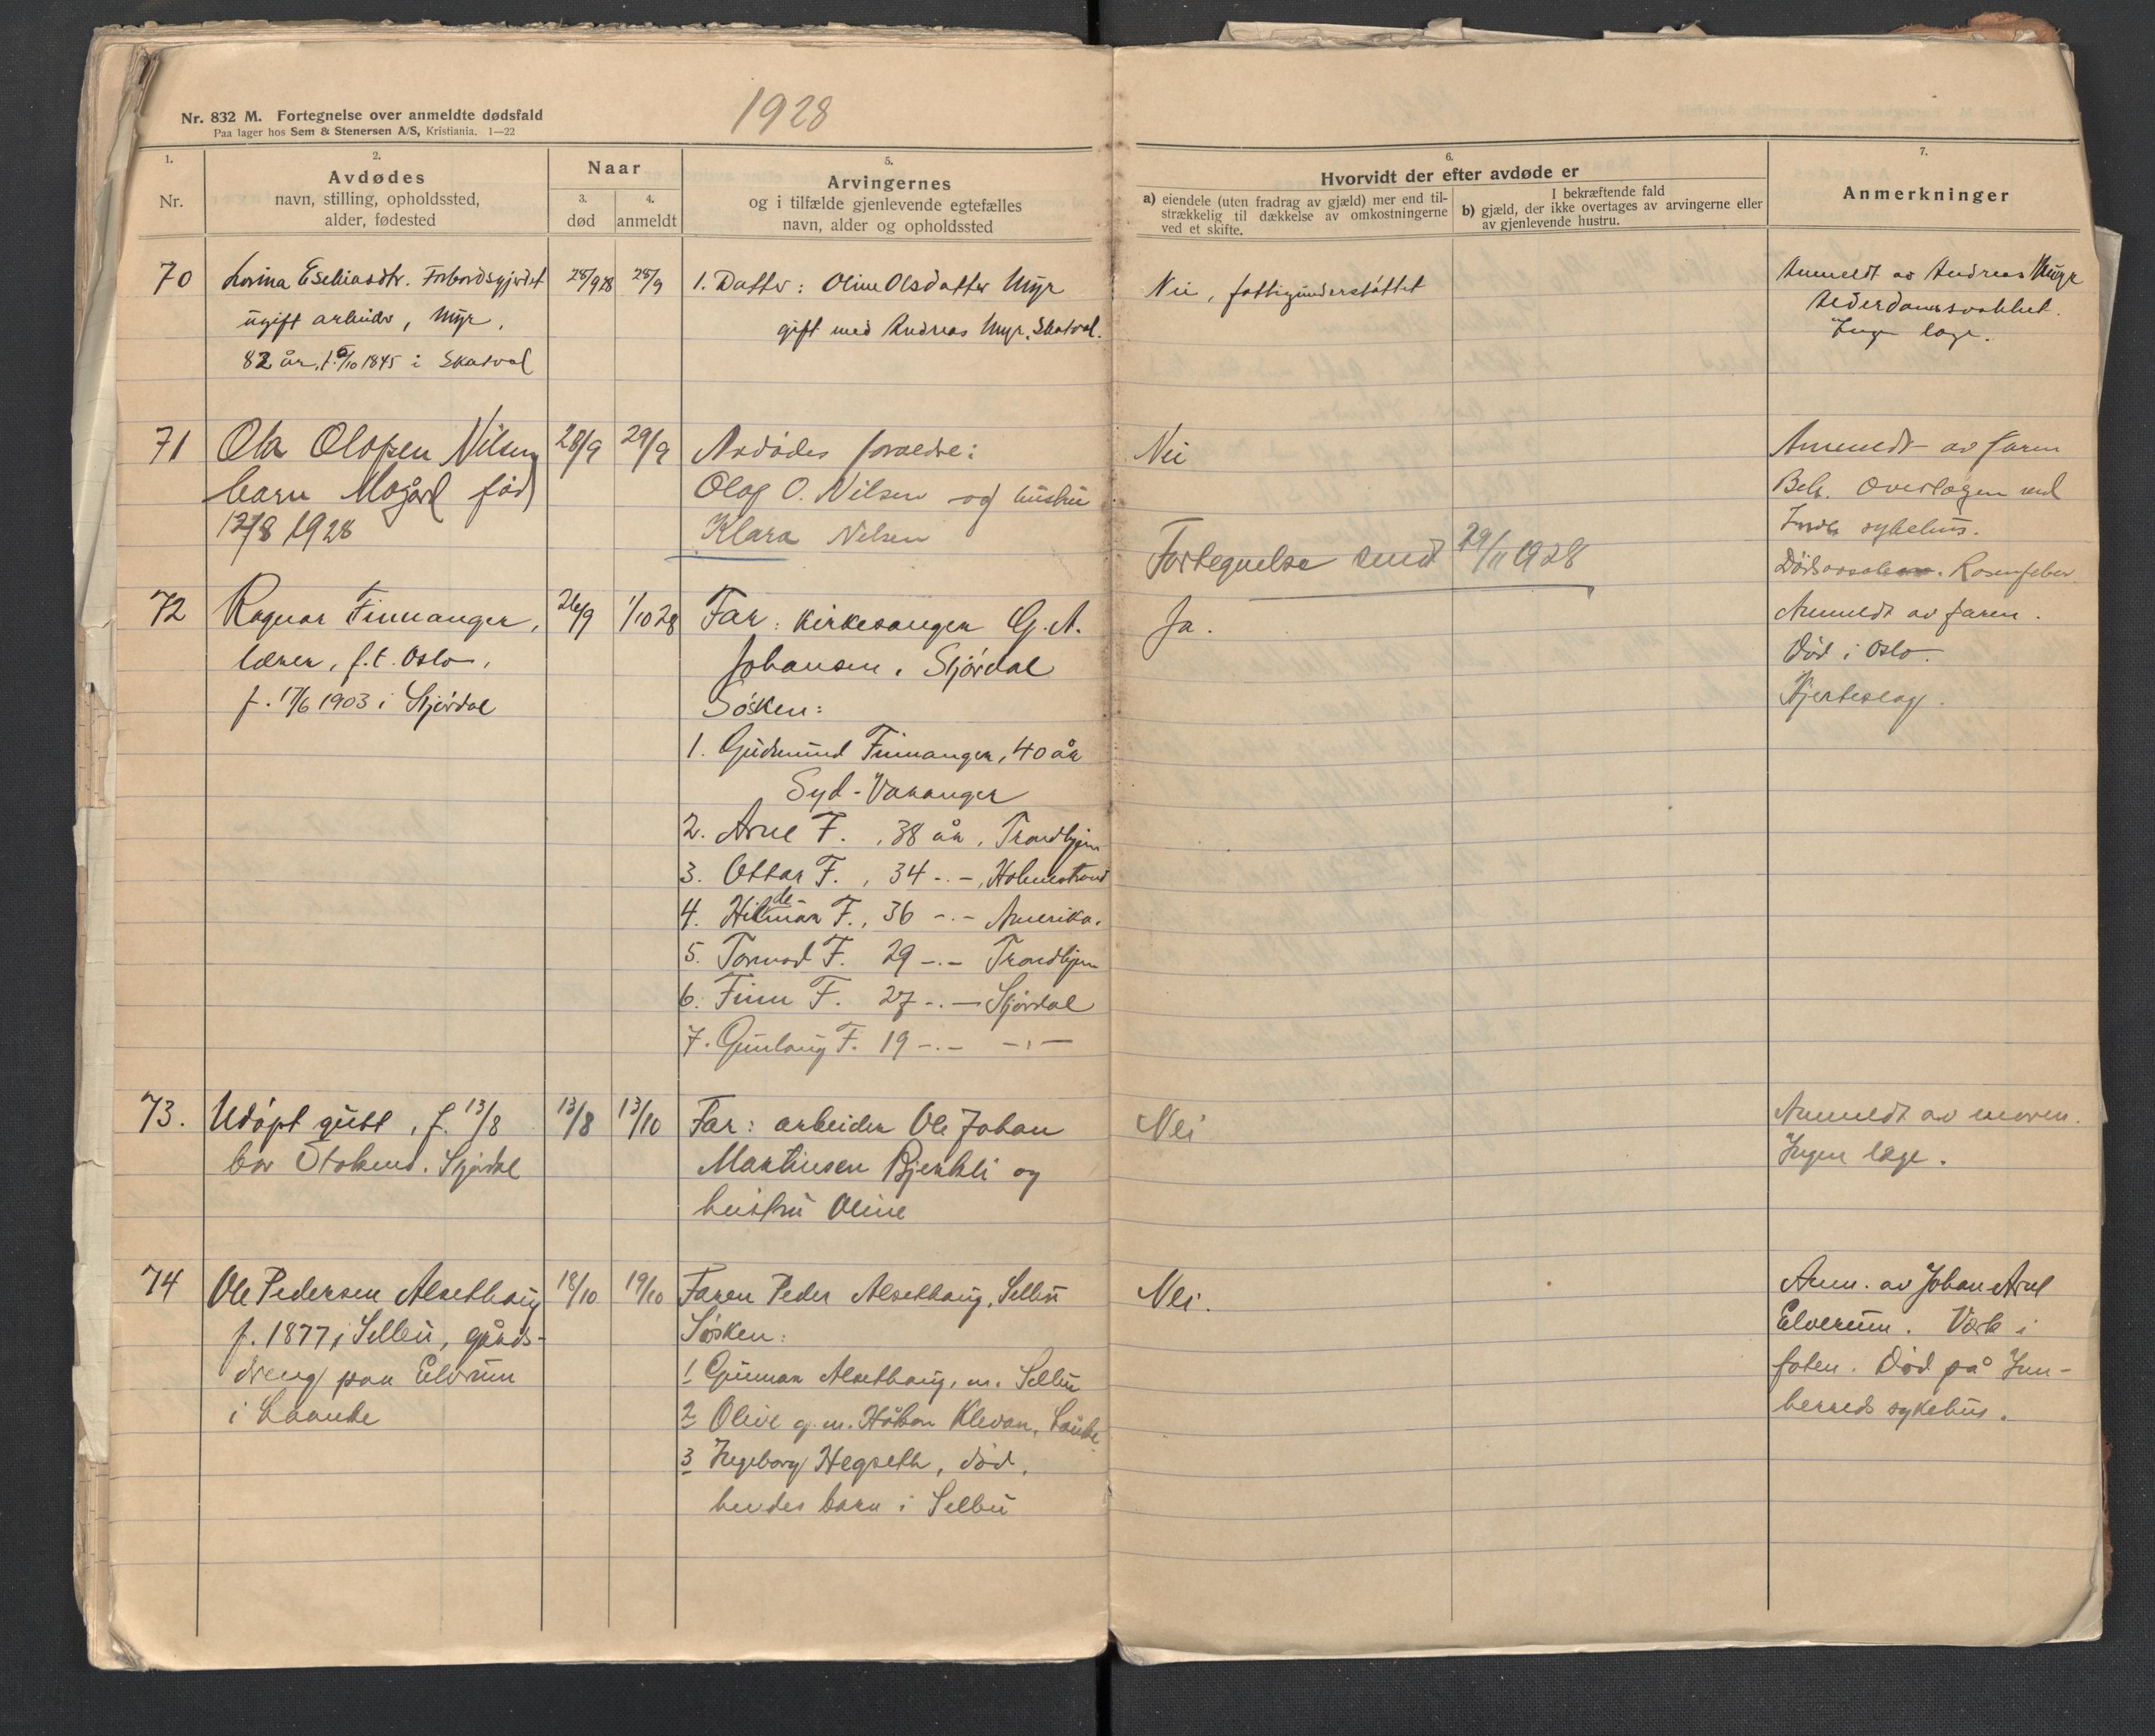 Nr. 832 M. Fortegnelse over anmeldte dødsfald
Paa lager hos Sem & Stenersen A/S, Kristiania. 1—22
1928
1.
Nr.
2.
Avdødes
navn, stilling, opholdssted,
alder, fødested
Naar
3.
død
4.
anmeldt
5.
Arvingernes
og i tilfælde gjenlevende egtefælles
navn, alder og opholdssted
6.
Hvorvidt der efter avdøde er
a) eiendele (uten fradrag av gjæld) mer end til-
strækkelig til dækkelse av omkostningerne
ved et skifte.
I bekræftende fald
b) gjæld, der ikke overtages av arvingerne eller
av gjenlevende hustru.
7.
Anmerkninger
70
Lovina Esekiasdtr. Forbordsgjerdet
ugift arbeider, Myr,
82 år, f. 5/10 1845 i Skatval
28/9 28
28/9
1. Datter: Oline Olsdatter Myr
gift med Andreas Myr, Skatval.
Nei, fattigunderstøttet
Anmeldt av Andreas Myr
Alderdomssvakhet.
Ingen læge.
71
Ola Olafsen Nilsen
barn Mogård född
12/8 1928
28/9
29/9
Avdødes foreldre:
Olaf O. Nilsen og hustru
Klara Nilsen
Nei
Fortegnelse sendt 29/11 1928
Anmeldt av faren
Beh. Overlægen ved
Innh. sykehus.
Dødsårsak. Rosenfeber.
72
Ragnar Finnanger,
lærer, f.t. Oslo,
f. 17/6 1903 i Stjørdal
26/9
1/10 28
Far: kirkesanger G. A.
Johansen, Stjørdal
Søsken:
1. Gudmund Finnanger, 40 år
Syd-Varanger
2. Arne F., 38 år, Trondhjem
3. Ottar F., 34 -.-, Holmestrand
4. Hildemar F., 36 -.- Amerika.
5. Tormod F. 29 -.- Trondhjem
6. Finn F. 27 -.- Stjørdal
7. Gunlaug F. 19 -.- -.-
Ja.
Anmeldt av faren.
Død i Oslo.
Hjerteslag.
73.
Udøpt gutt, f. 13/8
Stokmo. Stjørdal
13/8
13/10
Far: arbeider Ole Johan
Martinsen Bjerkli og
hustru Oline
Nei
Anmeldt av moren.
Ingen læge.
74
Ole Pedersen Alsethaug
f. 1877 i Selbu, gårds-
dreng paa Elvrum
i Laanke
18/10
19/10
Faren Peder Alsethaug, Selbu
Søsken:
1 Gunnar Alsethaug, m. Selbu
2 Olive g. m. Håkon Klevan, Lånke
3 Ingeborg Hegseth, død,
hendes barn i Selbu
Nei.
Anm. av Johan Arnt
Elverum. Verk i
foten. Død på Inn-
herreds sykehus.